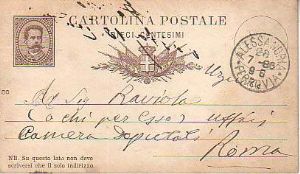 CARTOLINA POSTALE
DIECI CENTESIMI
ALESSANDRIA
86
Al Sig Raviola
(o chi per esso) Uffizi
Camera Deputati
Roma
NB. Su questo lato non deve
scriversi che il solo indirizzo.